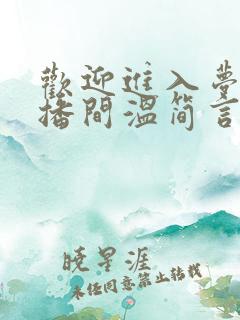 歡迎進入夢
播間溫簡言
曉星涯
未任同意禁止转载